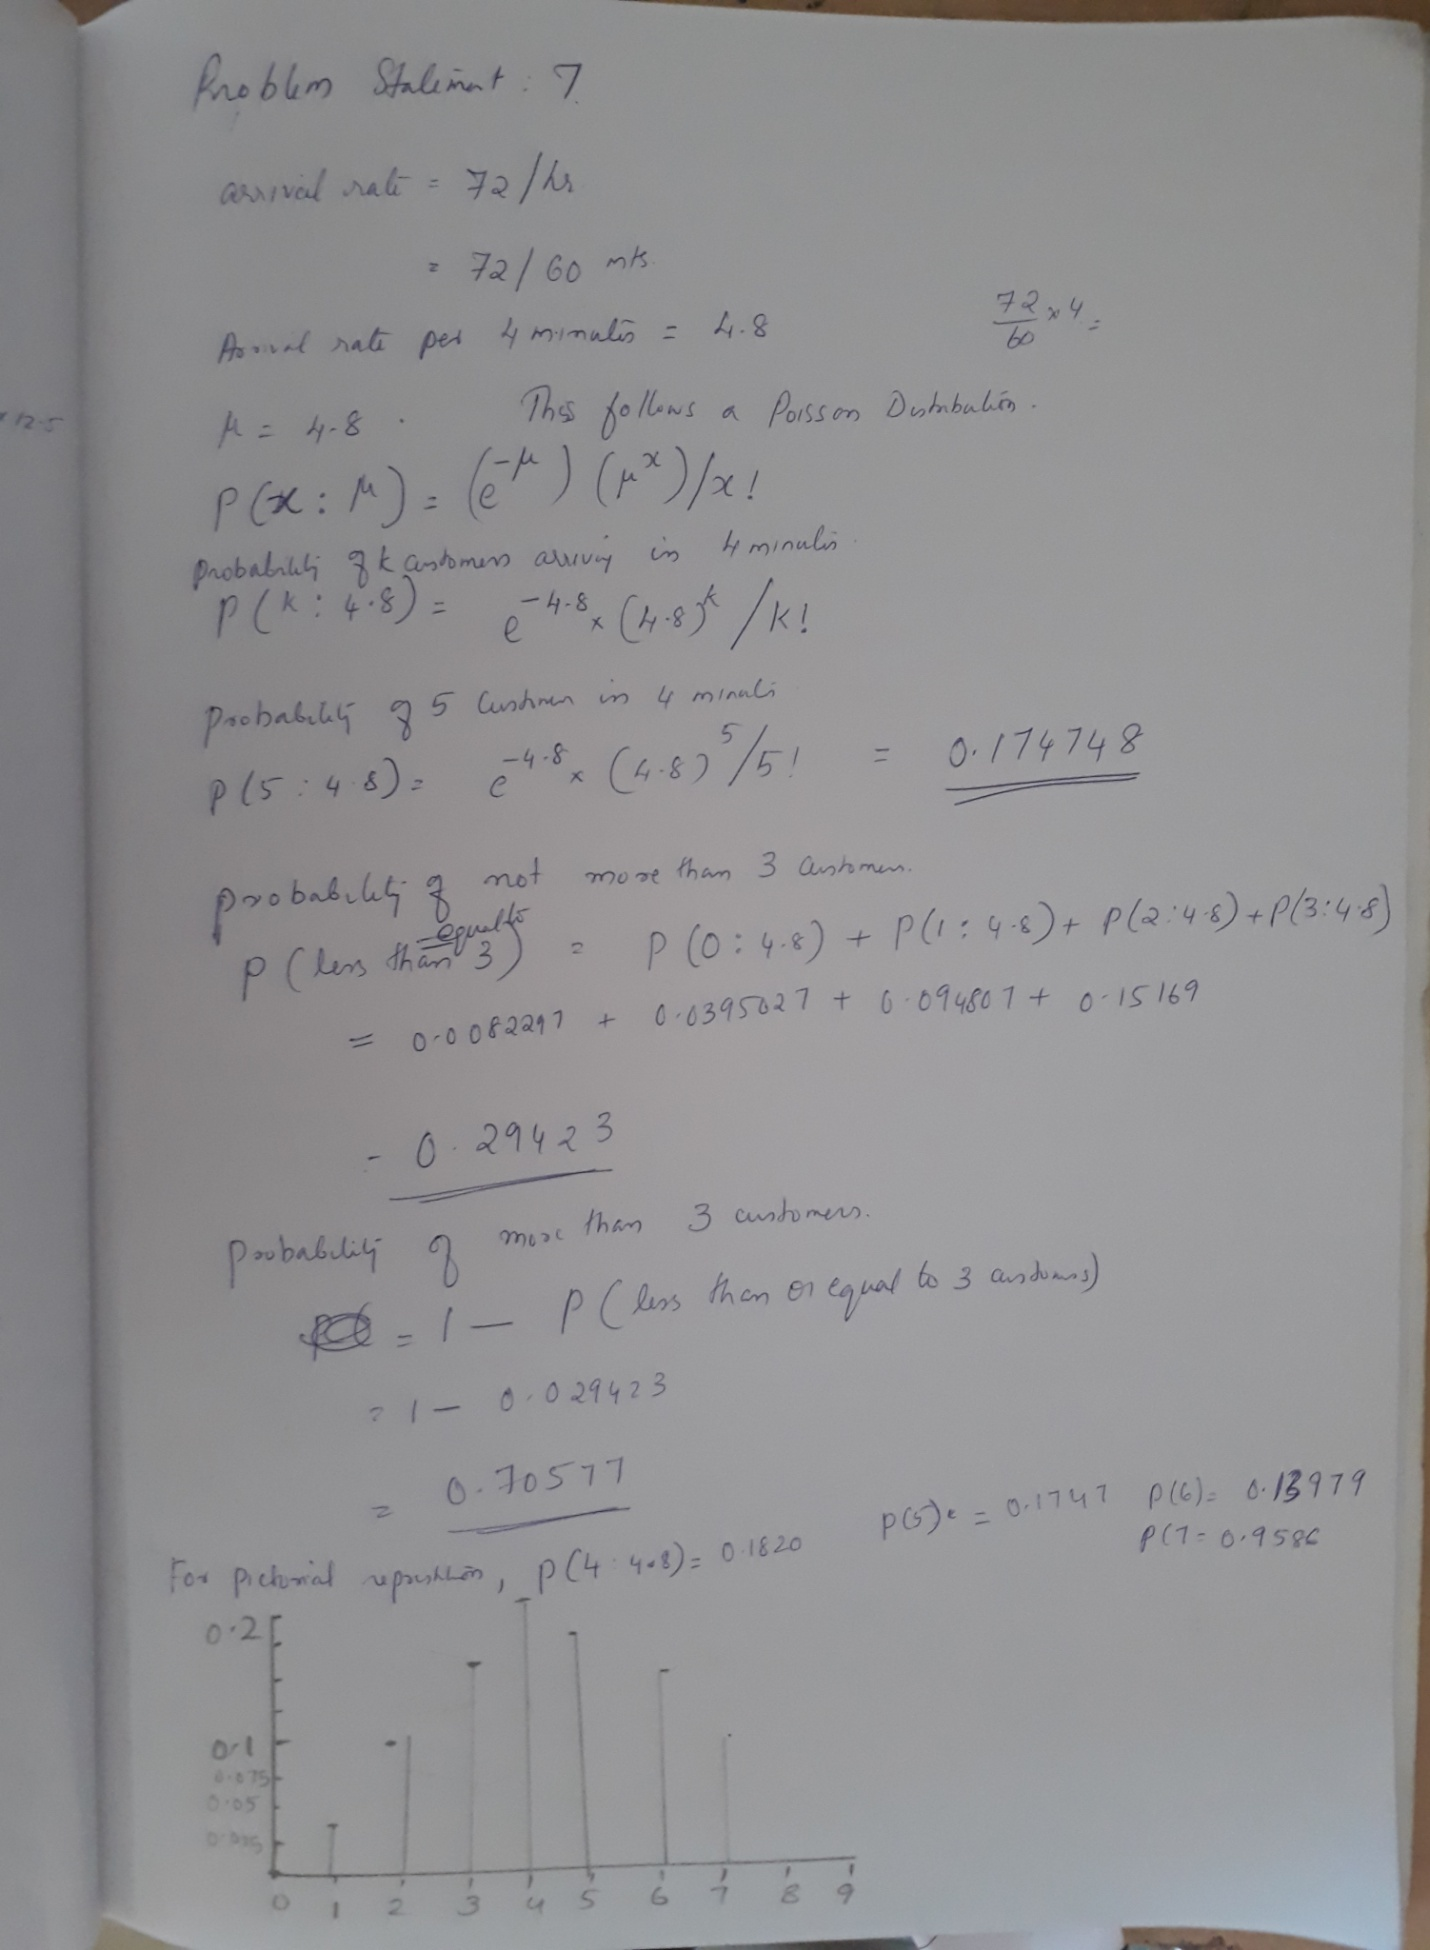 Problem Statement : 7
arrival rate = 72/hr
= 72/60 mts.
Arrival rate per 4 minutes = 4.8
72/60 x 4 =
x 12.5
μ = 4.8 . This follows a Poisson Distribution.
P(x : μ) = (e^-μ) (μ^x)/x!
Probability of k customers arriving in 4 minutes.
P(k : 4.8) = e^-4.8 x (4.8)^k /k!
Probability of 5 Customer in 4 minuts
P(5 : 4.8) = e^-4.8 x (4.8)^5/5! = 0.174748
probability of not more than 3 Customers.
P (less than equal to 3) = P(0 : 4.8) + P(1 : 4.8) + P(2 : 4.8) + P(3 : 4.8)
= 0.0082297 + 0.0395027 + 0.094807 + 0.15169
= 0.29423
Probability of more than 3 customers.
= 1 - P (less than or equal to 3 customers)
= 1 - 0.029423
= 0.70577
P(5) = 0.1747 P(6) = 0.13979
P(7 = 0.9586
For pictorial , P(4 : 4.8) = 0.1820
0.2
0.1
0.075
0.05
0.025
0 1 2 3 4 5 6 7 8 9